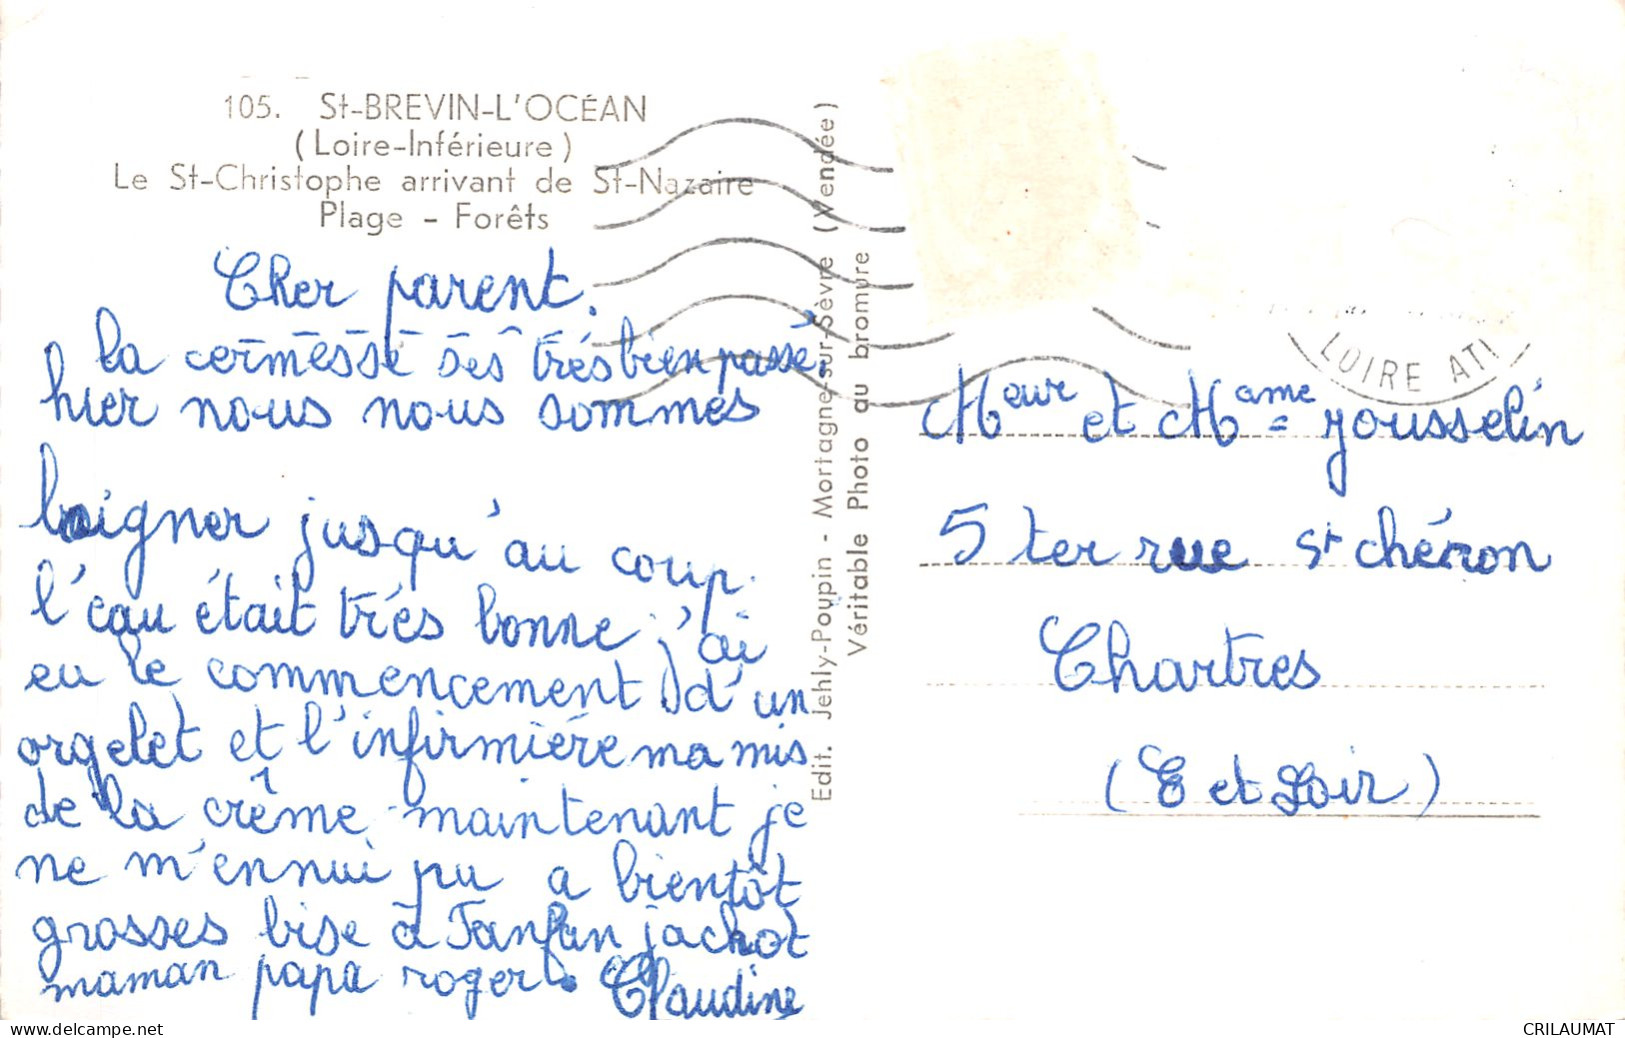 105. St-BREVIN-L'OCÉAN
(Loire-Inférieure)
Le St-Christophe arrivant de St-Nazaire
Plage - Forêts
Cher parent.
la cermesse ses trés bien passé.
hier nous nous sommes
baigner jusqu'au coup.
l'eau était trés bonne j'ai
eu le commencement d'un
orgelet et l'infirmiére ma mis
de la crême maintenant je
ne m'ennui pu a bientôt
grosses bise à Fanfan jachot
maman papa roger. Claudine
Edit. Jehly-Poupin - Mortagne-sur-Sèvre (Vendée)
Véritable Photo au bromure
LOIRE ATL
Meur et Mame = yousselin
5 ter rue St chéron
Chartres
(E et Loir)
CRILAUMAT